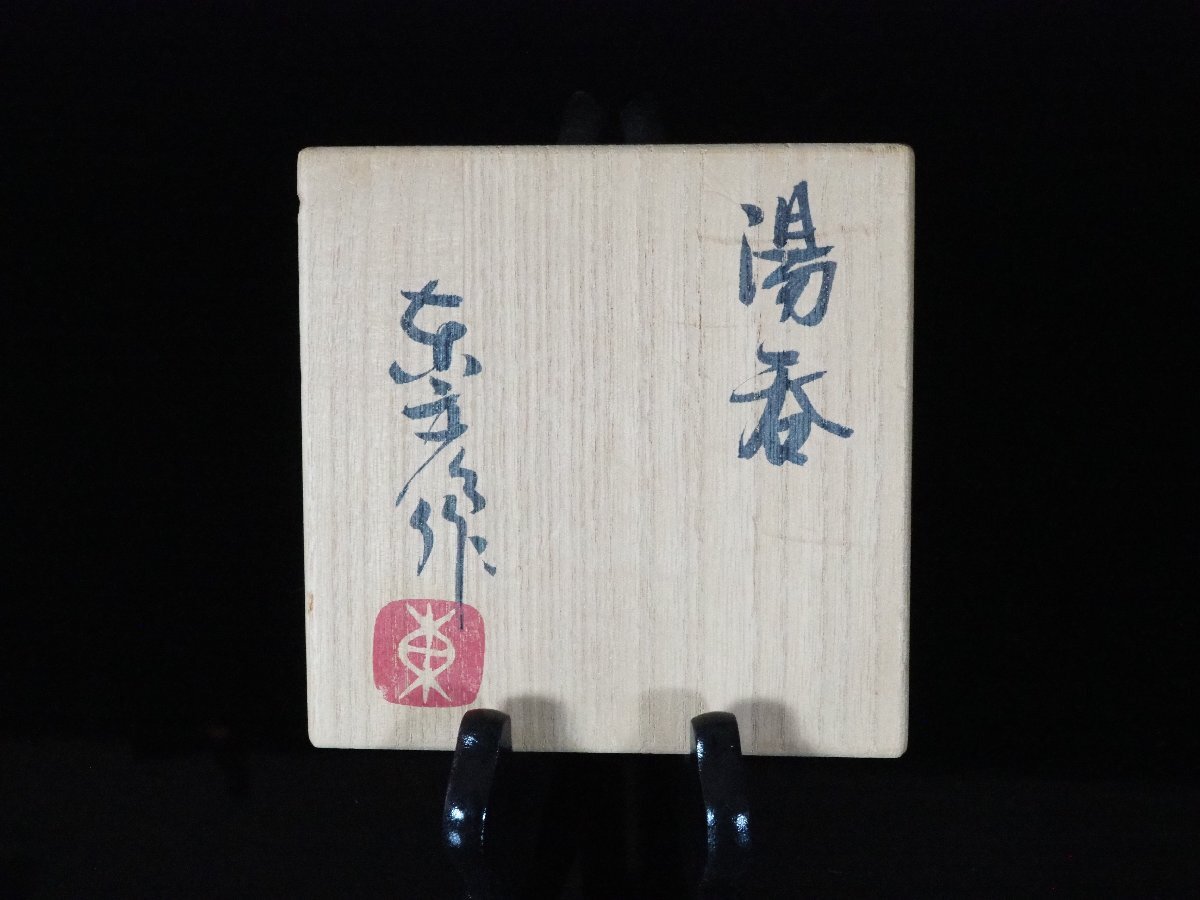 湯呑
東彦作
東